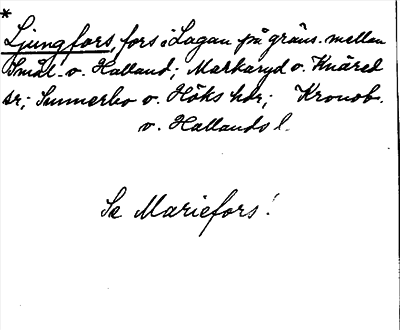 *
Ljungfors, fors i Lagan på gräns. mellan
Smål. o. Halland; Markaryd o. Knäred
sr; Sunnerbo o. Höks hdr; Kronob.
o. Hallands l.
Se Mariefors!